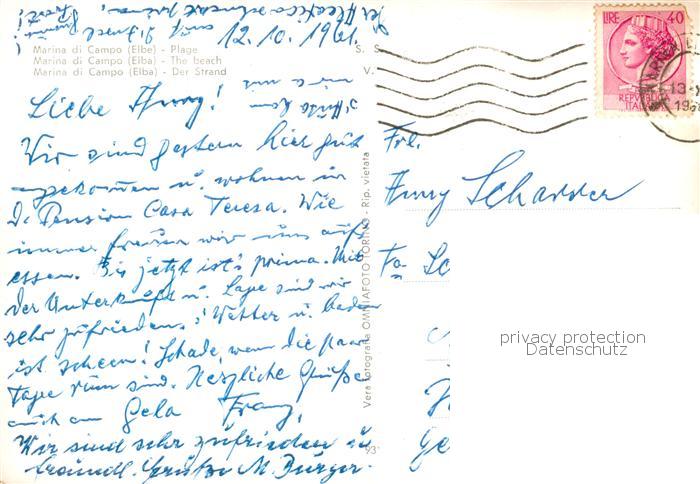 12.10.1961.
Marina di Campo (Elbe) - Plage
Marina di Campo (Elba) - The beach
Marina di Campo (Elba) - Der Strand
S. S.
V.
Liebe Anny!
Wir sind gestern hier gut
angekommen u. wohnen in
d. Pension Casa Teresa. Wie
immer freuen wir uns aufs
essen. Bis jetzt ist's prima. Mit
der Unterkunft u. Lage sind wir
sehr zufrieden. 's Wetter u. baden
ist scheen! Schade, wenn die paar
Tage rum sind. Herzliche Grüße
auch an Gela Franz,
Wir sind sehr zufrieden
freundl. Grüße M. Burger.
Vera fotografia OMNIAFOTO TORINO - Rip. vietata
93
LIRE 40
REPVBBLICA
ITALIANA
13-
Frl.
Anny Scharrer
Fa
privacy protection
Datenschutz